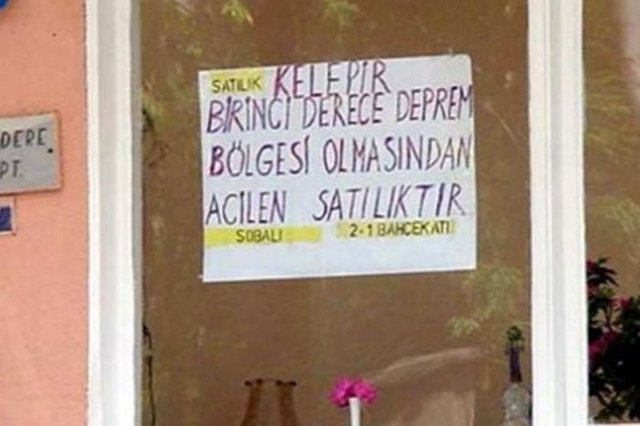 DERE
PT.
SATILIK KELEPİR
BİRİNCİ DERECE DEPREM
BÖLGESİ OLMASINDAN
ACİLEN SATILIKTIR
SOBALI 2-1 BAHÇE KATI